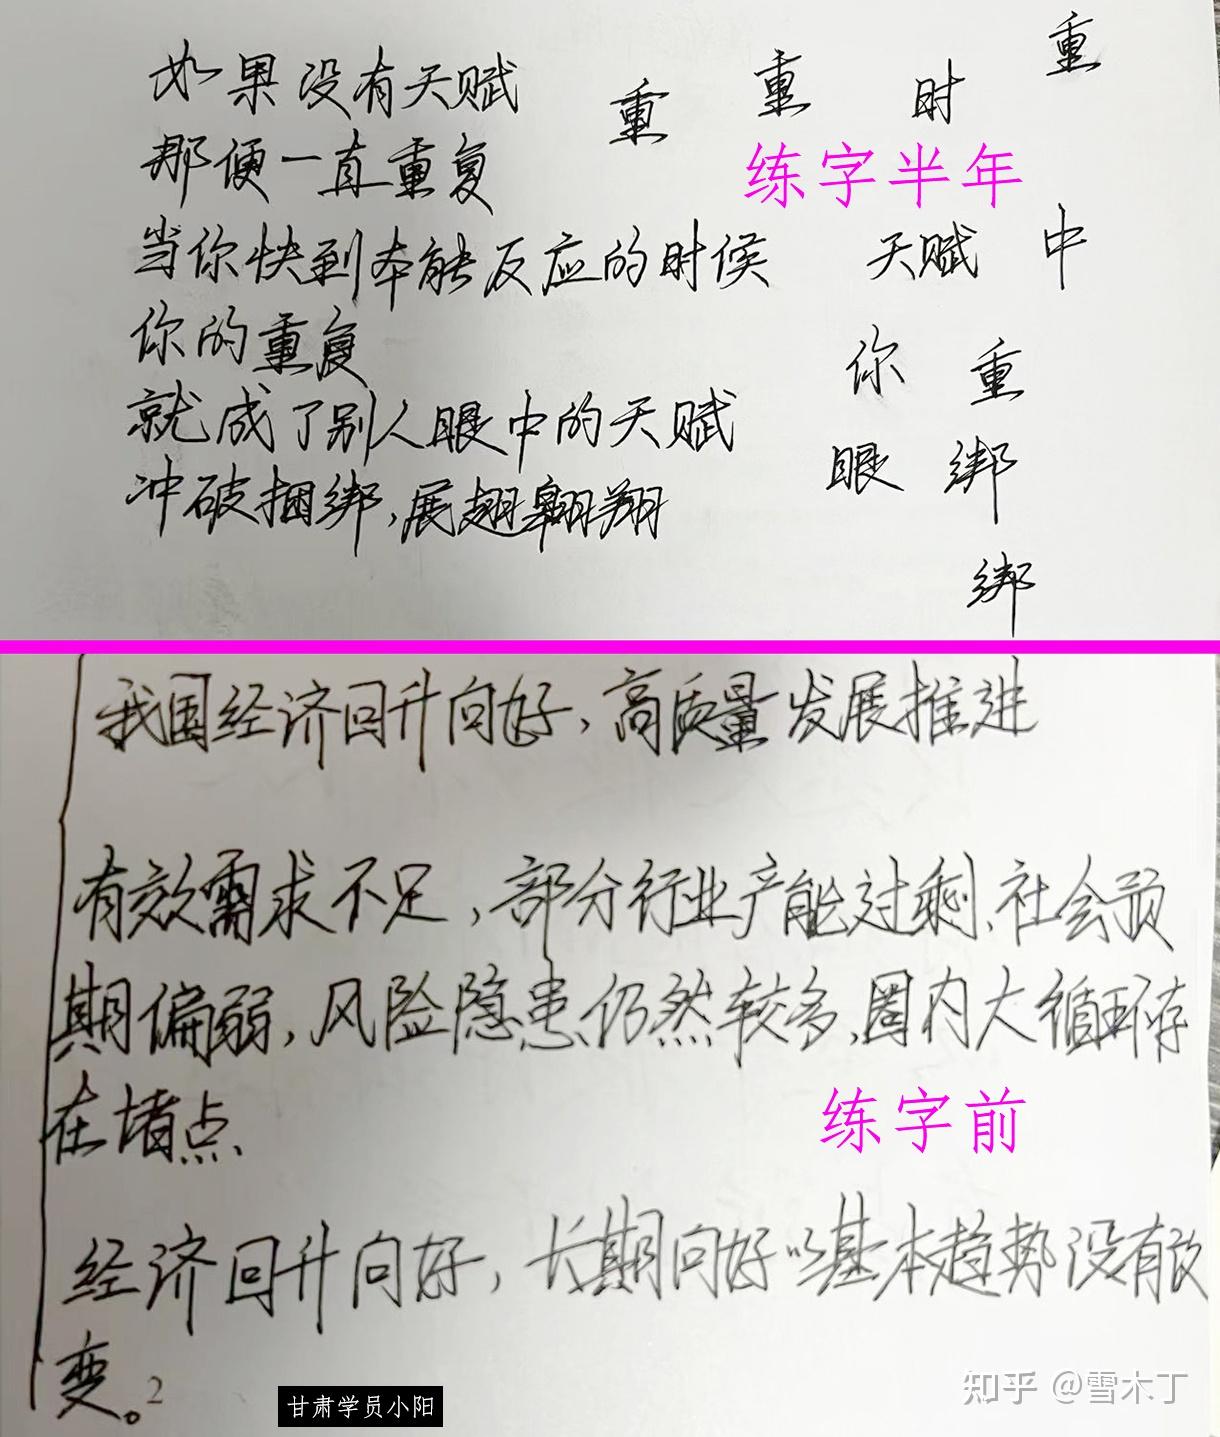 如果没有天赋
那便一直重复
当你快到本能反应的时候
你的重复
就成了别人眼中的天赋
冲破捆绑,展翅翱翔
重 重 时 重
练字半年
天赋 中
你 重
眼 绑
绑
我国经济回升向好,高质量发展推进
有效需求不足,部分行业产能过剩、社会预
期偏弱,风险隐患仍然较多,圈内大循环存
在堵点、
经济回升向好,长期向好的基本趋势没有改
变。2
练字前
甘肃学员小阳
知乎 @雪木丁